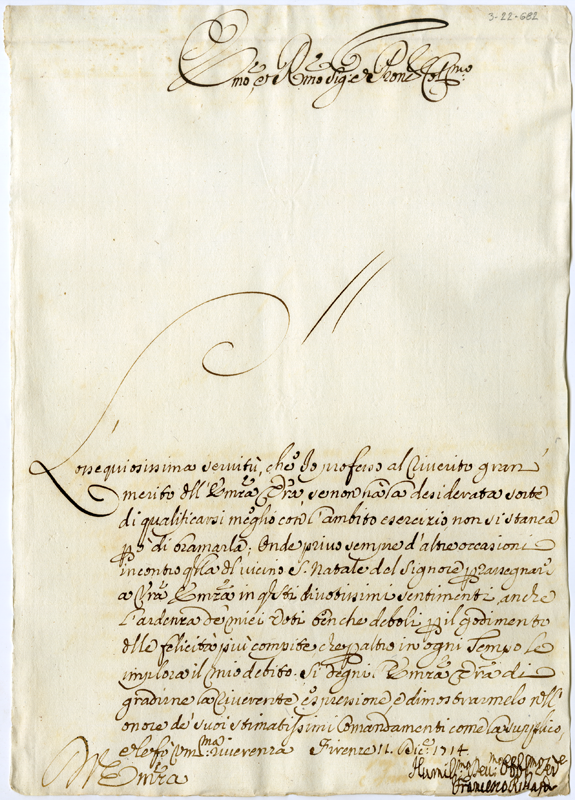 3-22-682
Emo et Rmo Sig.r e Prone Colmo
L'ossequiosissima servitù, che Io professo al riverito gran
merito dell' Emza Vra se non hà la desiderata sorte
di qualificarsi meglio con l'ambito esercizio non si stanca
però di bramarla; Onde privo sempre d'altre occasioni
incontro qlla del vicino S. Natale del Signore p rassegnare
a Vra Emza in qsti divotissimi sentimenti anche
l'ardenza de miei voti benche deboli p il godimento
delle felicità più compite che p altro in ogni Tempo le
implora il mio debito. Si degni l'Emza Vra di
gradirne la riverente espressione, e dimostrarmelo nell'
onore de' suoi stimatissimi Comandamenti come la supplico,
e le fo umma riverenza Firenze 11. Dice. 1714
Emza
Humilmo Devmo Obblmo
Francesco